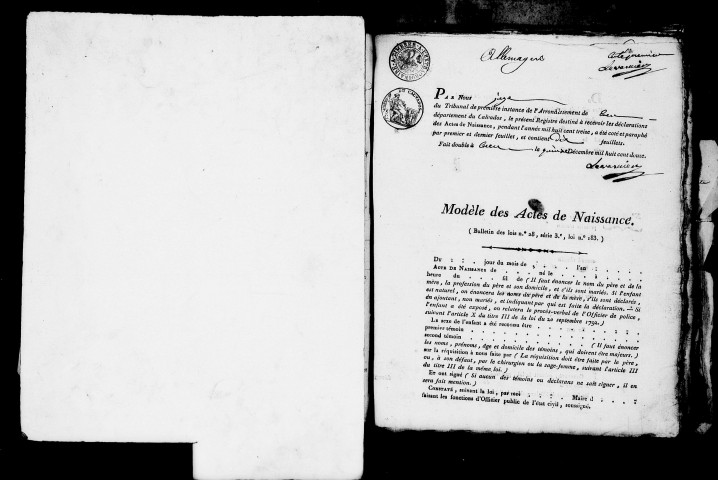 Allemagne
cote premiere
PAR Nous juge
du Tribunal de première instance de l'Arrondissement de Caen
département du Calvados, le présent Registre destiné à recevoir les déclarations
des Actes de Naissance, pendant l'année mil huit cent treize, a été coté et paraphé
par premier et dernier feuillets, et contient dix feuillets.
Fait double à Caen le quinze Décembre mil huit cent douze.
Modèle des Actes de Naissance.
( Bulletin des lois n.° 28, série 3.e, loi n.° 183. )
DU . . . jour du mois de . . . . l'an . . . .
ACTE DE NAISSANCE de . . . . né le . . . . à . . . .
heure du . . . fil de ( Il faut énoncer le nom du père et de la
mère, la profession du père et son domicile, et s'ils sont mariés. Si l'enfant
est naturel, on énoncera les noms du père et de la mère, s'ils sont déclarés,
en ajoutant, non mariés, et indiquant par qui est faite la déclaration. — Si
l'enfant a été exposé, on relatera le procès-verbal de l'Officier de police,
suivant l'article X du titre III de la loi du 20 septembre 1792. )
Le sexe de l'enfant a été reconnu être . . . .
premier témoin . . . .
second témoin . . . . ( Il faut énoncer
les noms, prénoms, âge et domicile des témoins, qui doivent être majeurs. )
sur la réquisition à nous faite par ( La réquisition doit être faite par le père,
ou, à son défaut, par le chirurgien ou la sage-femme, suivant l'article III
du titre III de la même loi. )
Et ont signé ( Si aucun des témoins ou déclarans ne sait signer, il en
sera fait mention. )
CONSTATÉ, suivant la loi, par moi . . . . Maire d . . . .
faisant les fonctions d'Officier public de l'état civil, soussigné.